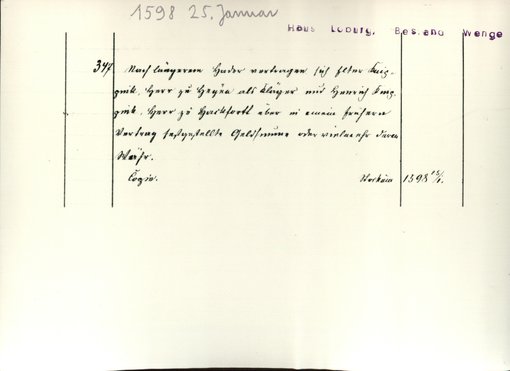 1598 25. Januar
Haus Loburg, Bestand Wenge
347 Nach längerem Hader vertragen sich
Herr zu als Kläger und Henrich
Herr zu Hackfort über in einem frühern
Vertrag festgestellte Geldsumme oder vielmehr deren
Währ.
Copie. 1598 25/1.